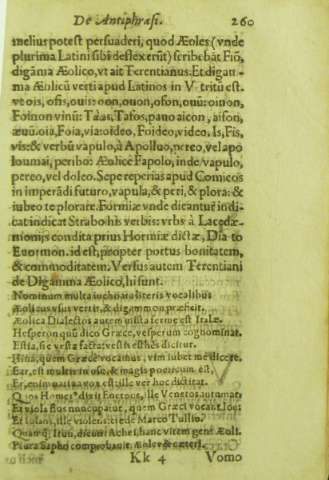 De Antiphrasi. 260
melius potest persuaderi, quod Æoles (vnde
plurima Latini sibi deflexerũt) scribebãt Fiõ,
digãma Æolico, vt ait Terentianus. Et digam-
ma Æoliũ verti apud Latinos in V. tritũ est.
vt ois, ofis, ouis: oon, ouon, ofon, ouũ: oinon,
Foinon vinũ: Taas, Tafos, pauo aicon, aifon,
æuũ. oia, Foia, via: oideo, Foideo, video. Is, Fis,
vis: & verbũ vapulo, à Apolluo, pereo, vel apo
loumai, peribo: Æolicè Fapolo, inde vapulo,
pereo, vel doleo. Sæpe reperias apud Comicos
in imperãdi futuro, vapula, & peri, & plora: &
iubeo te plorare. Formiæ vnde dicantur indi-
cat indicat Strabo his verbis: vrbs à Lacedæ-
monijs condita prius Hormiæ dictæ, Dia to
Euormon. id est, propter portus bonitatem,
& commoditatem. Versus autem Terentiani
de Digamma Æolico, hi sunt.
Nominum multa inchoata literis vocalibus
Æolicus vsus vertit, & digammon præficit.
Æolica Dialectos autem mista ferme est Italæ.
Hesperon quũ dico Græce, vesperum cognominat.
Estia, sic vesta facta: vestis esthes dicitur.
Hina, quem Græce vocamus, vim iubet me dicere.
Ear, est multis in vsu, & magis poeticum est,
Er, enim
Quos Homerus dixit Enetous, ille Venetos autumat:
Et viola flos nuncupatur, quem Græci vocant Ion:
Et Iolaus, ille violaus: teste Marco Tullio.
Quamq; Itun, dicunt Achei, hanc vitem gens Æoli.
Plura Sappho comprobauit, Æoles & cæteri.
Kk 4 Vomo